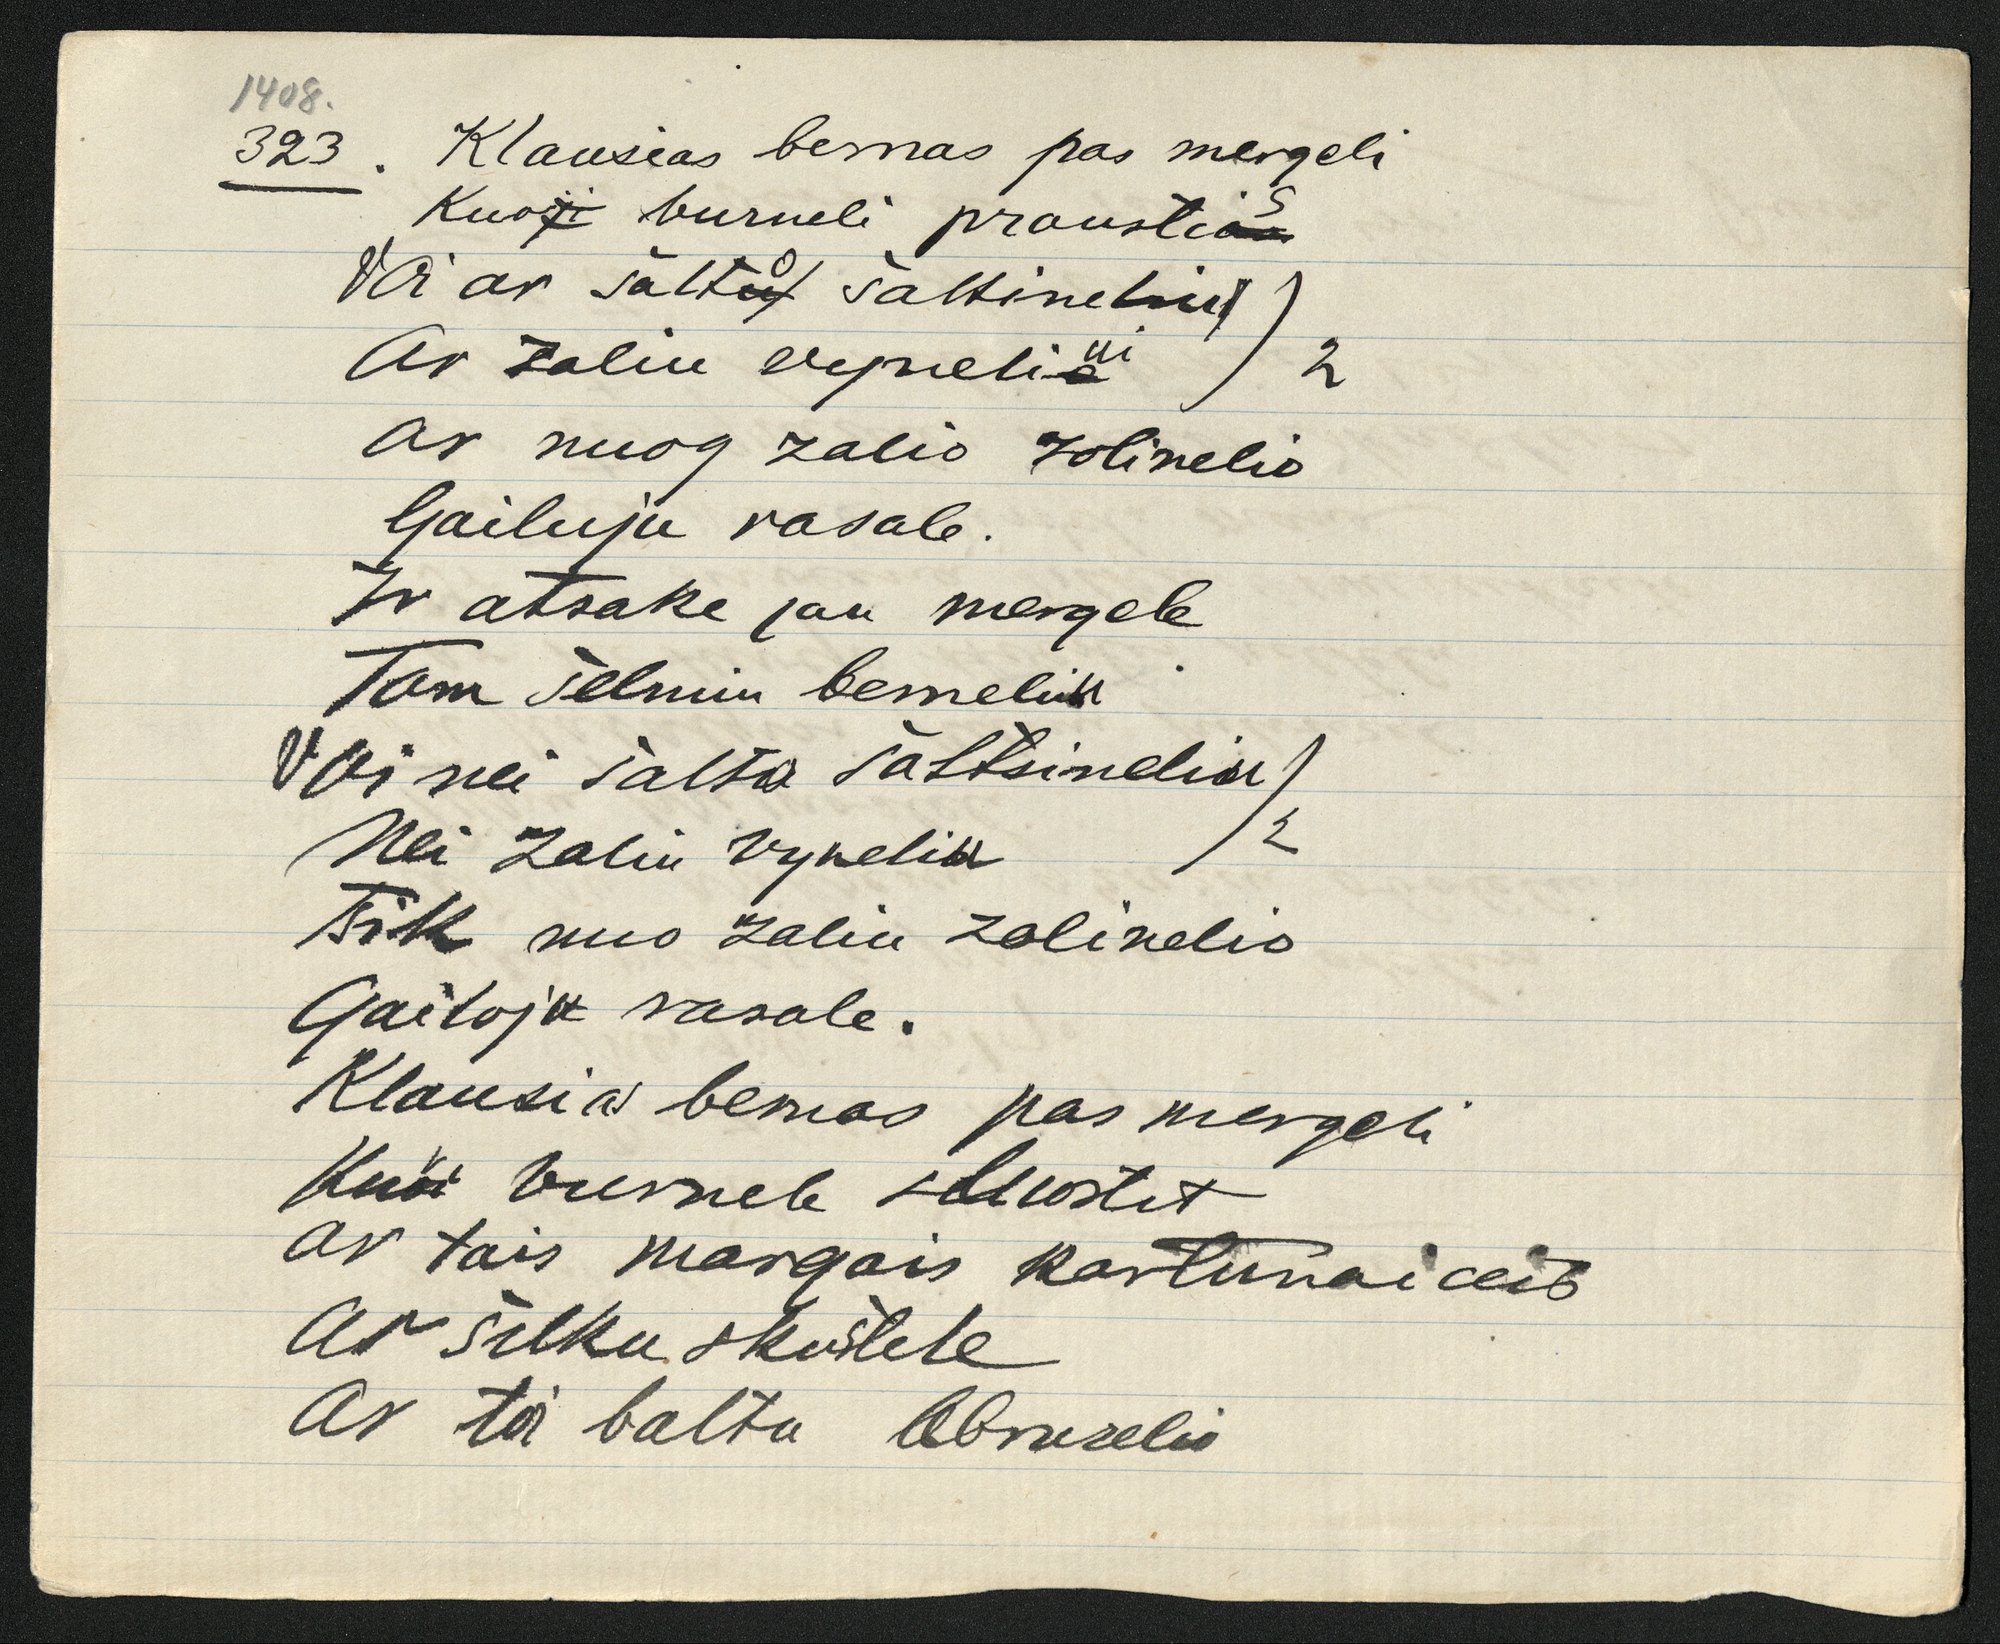 1408.
323. Klausias bernas pas mergeli
Kuo burneli praustis
Voi ar šalto šaltineliu
Ar zaliu vyneliui ) 2
Ar nuog zalio zolinelio
Gailuju rasale.
Ir atsake jau mergele
Tam šelmiu berneliu
Voi nei šalta šaltsineliu
Nei zaliu vyneliu ) 2
Tsik nuo zaliu zolinelio
Gailoju rasale.
Klausias bernas pas mergeli
Kuoi burnele
Ar tais margais kartunaiceis
Ar šilku skušlele
Ar toi baltu Obruselio